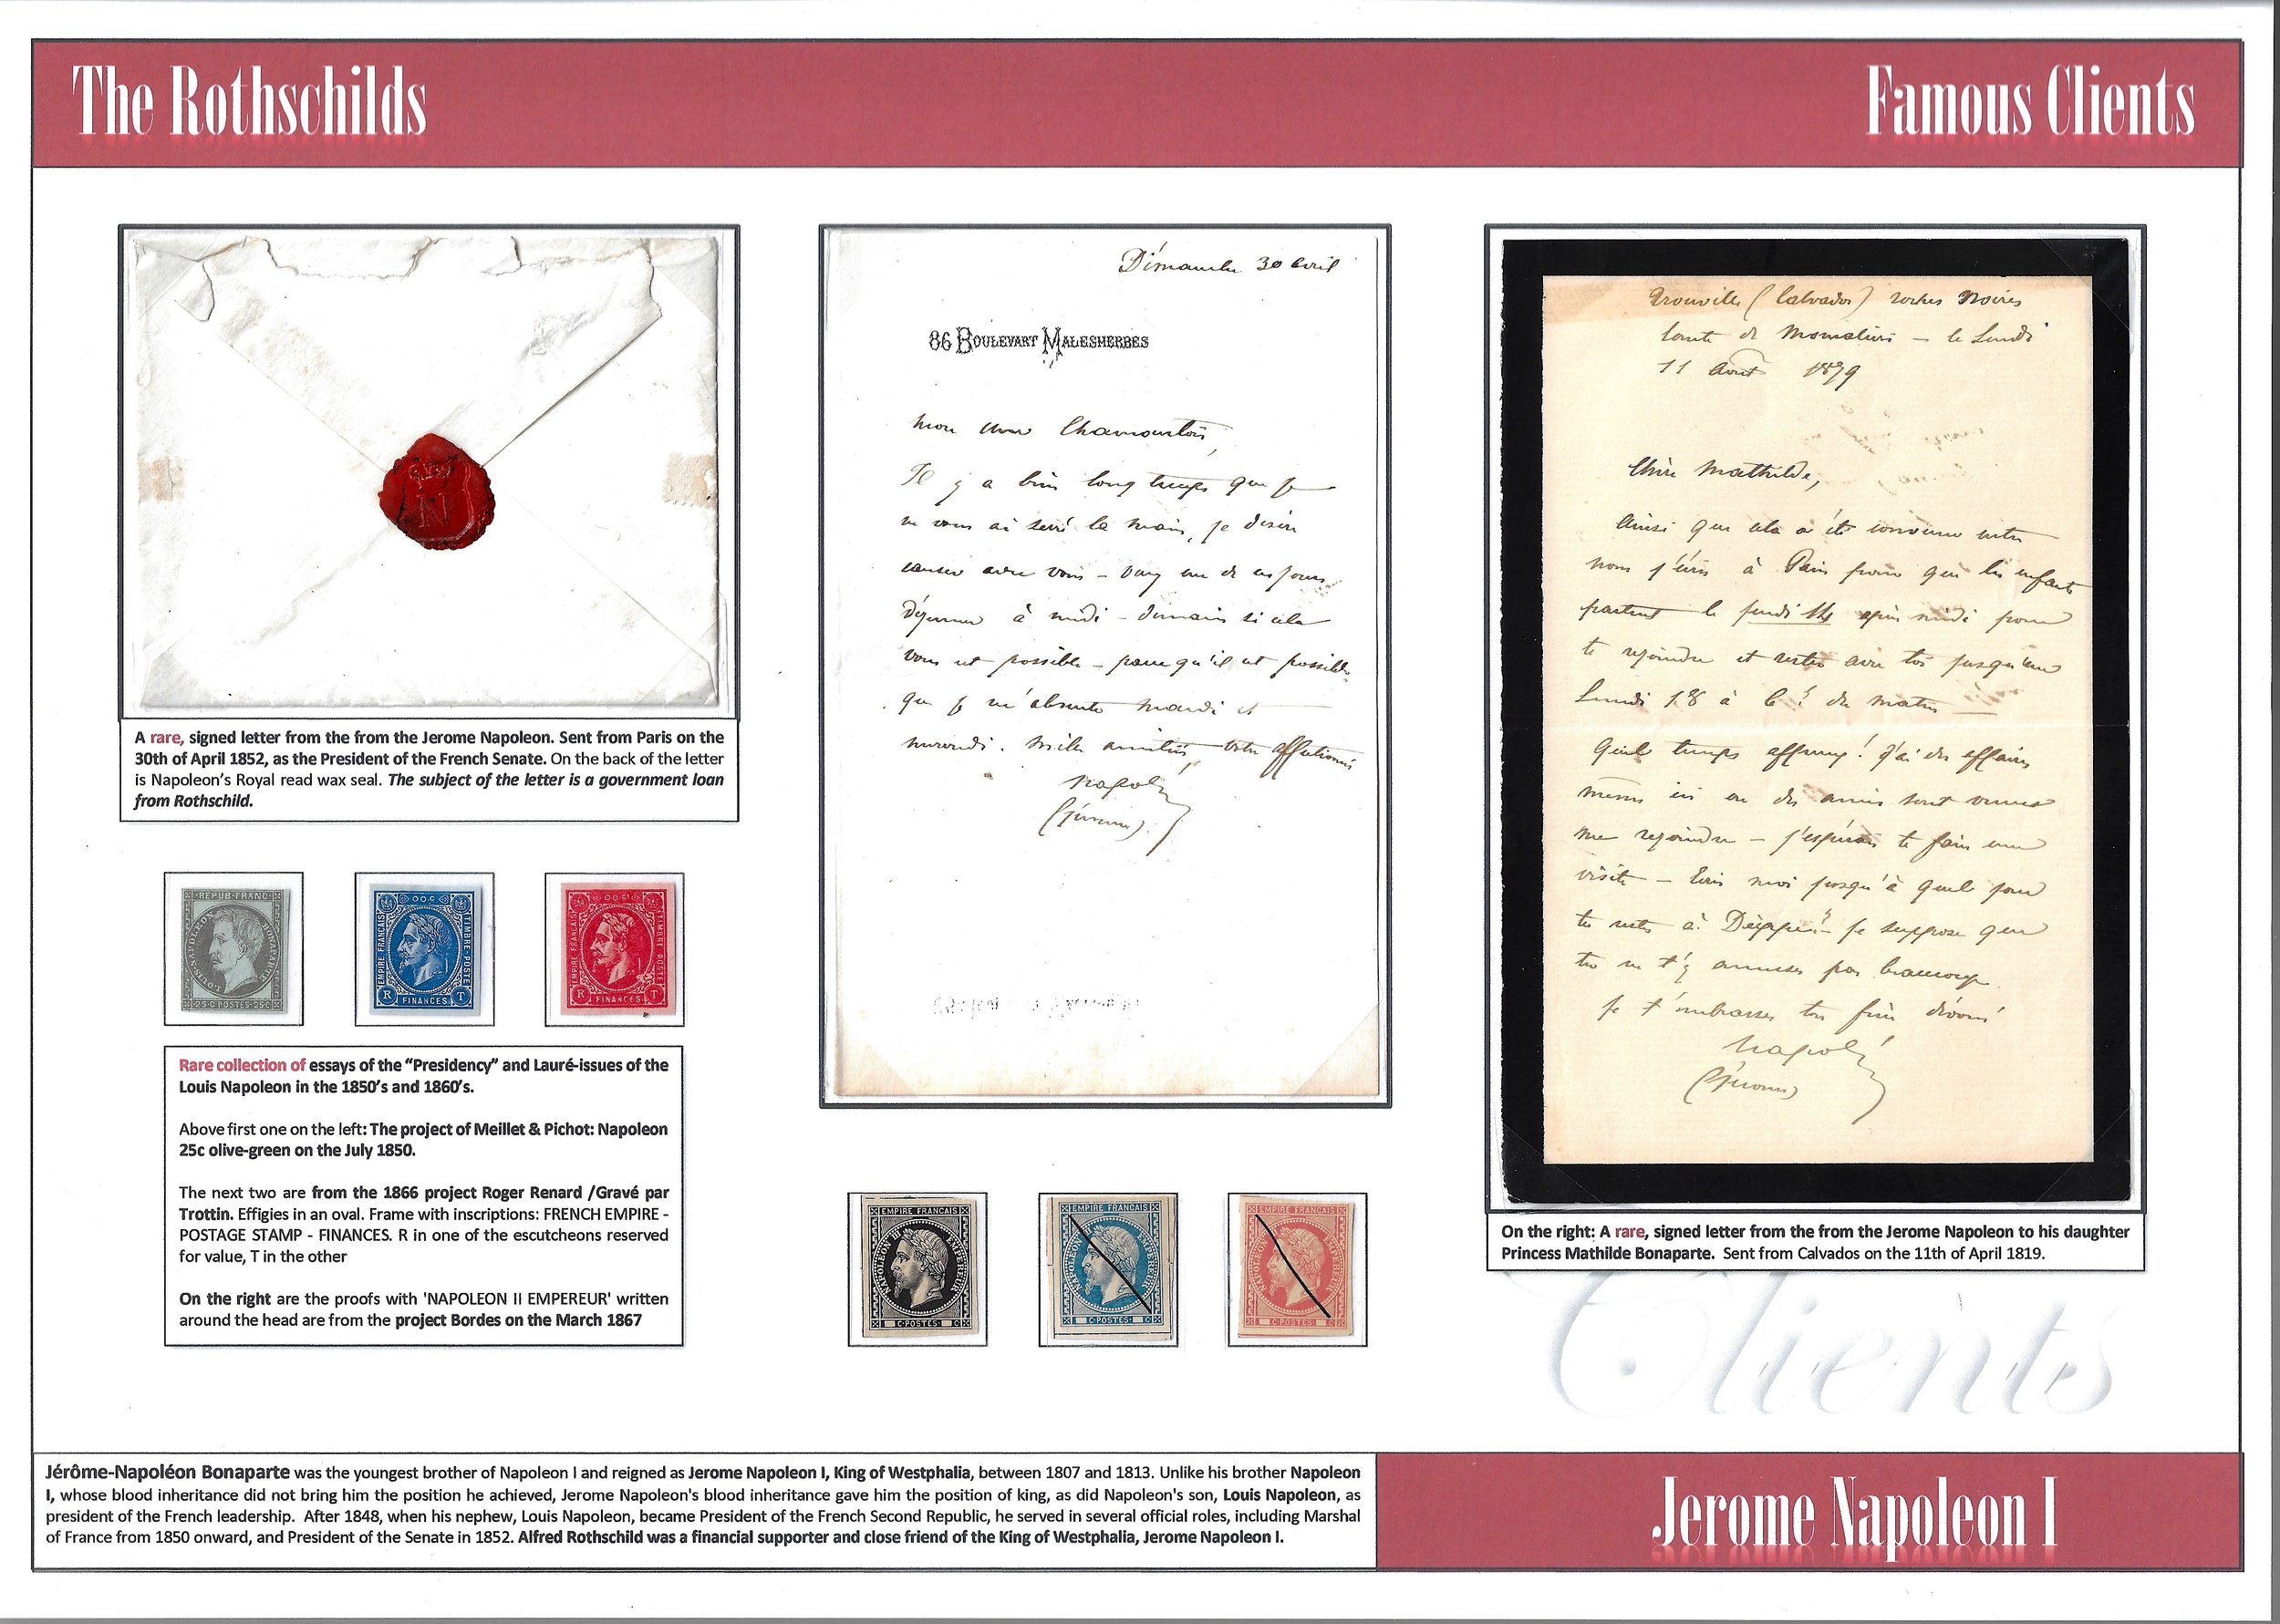 The Rothschilds
Famous Clients
N
A rare, signed letter from the from the Jerome Napoleon. Sent from Paris on the
30th of April 1852, as the President of the French Senate. On the back of the letter
is Napoleon's Royal read wax seal. The subject of the letter is a government loan
from Rothschild.
REPUB·FRANC·
LOUIS-NAPOLEON BONAPARTE
25·C·POSTES·25C
EMPIRE FRANÇAIS
TIMBRE POSTE
R FINANCES T
EMPIRE FRANÇAIS
TIMBRE POSTE
R FINANCES T
Rare collection of essays of the “Presidency” and Lauré-issues of the
Louis Napoleon in the 1850's and 1860's.
Above first one on the left: The project of Meillet & Pichot: Napoleon
25c olive-green on the July 1850.
The next two are from the 1866 project Roger Renard /Gravé par
Trottin. Effigies in an oval. Frame with inscriptions: FRENCH EMPIRE -
POSTAGE STAMP - FINANCES. R in one of the escutcheons reserved
for value, T in the other
On the right are the proofs with 'NAPOLEON II EMPEREUR' written
around the head are from the project Bordes on the March 1867
Dimanche 30 avril
86 BOULEVART MALESHERBES
mon cher
Il y a bien long temps que je
ne vous ai serré la main, je désire
causer avec vous – un de ces jours
déjeuner à midi – demain si cela
vous est possible – parce qu'il est possible
que je m'absente mardi et
mercredi. mille amitiés, votre affectionné
Napoléon
(Jérôme).
EMPIRE FRANÇAIS
NAPOLEON III EMPEREUR
C·POSTES· C
EMPIRE FRANÇAIS
NAPOLEON III EMPEREUR
C·POSTES· C
EMPIRE FRANÇAIS
NAPOLEON III EMPEREUR
C·POSTES· C
Trouville (Calvados) roches noires
le Lundi
11 Août 1879
Chère Mathilde,
Ainsi que cela a été convenu entre
nous j'écris à Paris pour que les enfants
partent le jeudi 14 après midi pour
te rejoindre et rester avec toi jusqu'au
Lundi 18 à du matin
Quel temps affreux! j'ai des affaires
même ici où des amis sont venus
me rejoindre – j'espérais te faire une
visite – Ecris moi jusqu'à quel jour
tu restes à Dieppe? – je suppose que
tu ne t'y amuses pas beaucoup
Je t'embrasse ton frère dévoué
Napoléon
(Jérôme)
On the right: A rare, signed letter from the from the Jerome Napoleon to his daughter
Princess Mathilde Bonaparte. Sent from Calvados on the 11th of April 1819.
Clients
Jérôme-Napoléon Bonaparte was the youngest brother of Napoleon I and reigned as Jerome Napoleon I, King of Westphalia, between 1807 and 1813. Unlike his brother Napoleon
I, whose blood inheritance did not bring him the position he achieved, Jerome Napoleon's blood inheritance gave him the position of king, as did Napoleon's son, Louis Napoleon, as
president of the French leadership. After 1848, when his nephew, Louis Napoleon, became President of the French Second Republic, he served in several official roles, including Marshal
of France from 1850 onward, and President of the Senate in 1852. Alfred Rothschild was a financial supporter and close friend of the King of Westphalia, Jerome Napoleon I.
Jerome Napoleon I